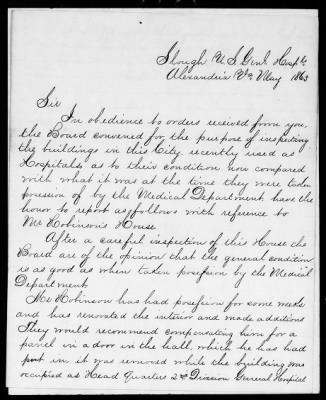 Slough U.S. Genl. Hospl.
Alexandria Va May 1863
Sir
In obedience to orders received from you,
the Board convened for the purpose of inspecting
the buildings in this City, recently used as
Hospitals, as to their condition now compared
with what it was at the time they were taken
possession of by the Medical Department have the
honor to report as follows with reference to
Mr Robinson's House
After a careful inspection of this House the
Board are of the opinion that the general condition
is as good as when taken possession by the Medical
Department
Mr Robinson has had possession for some weeks
and has renovated the interior and made additions
They would recommend compensating him for a
panel in a door in the hall, which he has had
put in it was removed while the building was
occupied as Head Quarters 2nd Division General Hospital